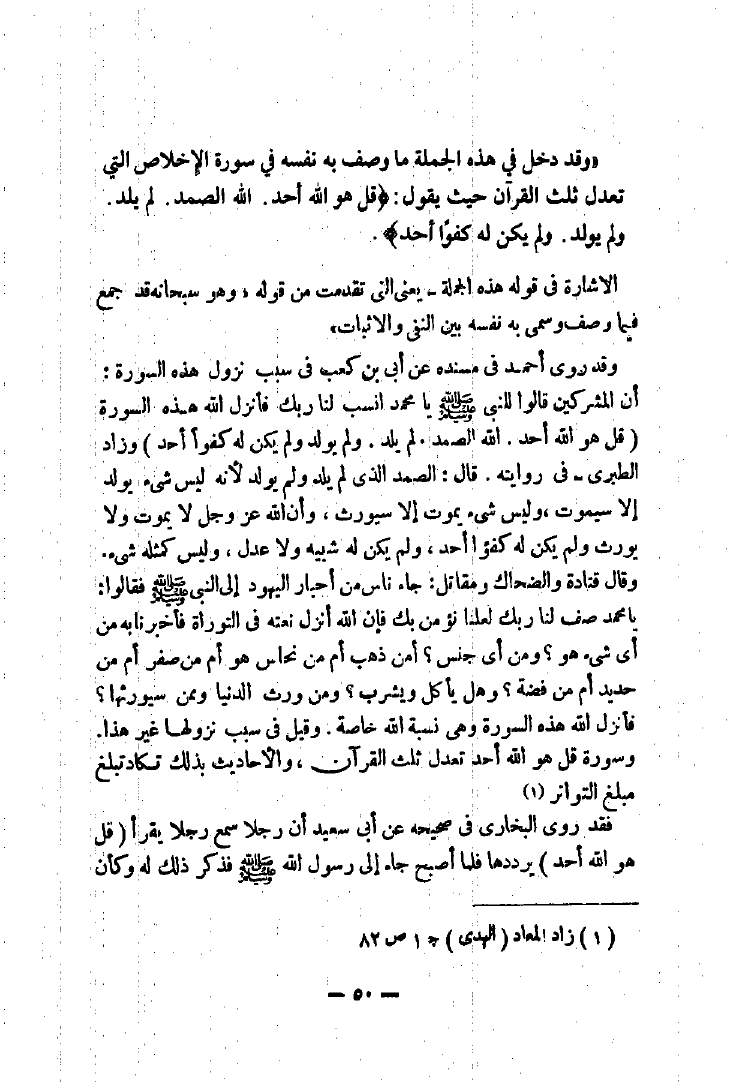 «وقد دخل في هذه الجملة ما وصف به نفسه في سورة الإخلاص التي
تعدل ثلث القرآن حيث يقول: ﴿قل هو الله أحد. الله الصمد. لم يلد.
ولم يولد. ولم يكن له كفوًا أحد﴾.
الاشارة فى قوله هذه الجملة ـ يعنى التى تقدمت من قوله « وهو سبحانه قد جمع
فيما وصف وسمى به نفسه بين النفى والاثبات»
وقد روى أحمد فى مسنده عن أبى بن كعب فى سبب نزول هذه السورة :
أن المشركين قالوا للنبى ﷺ يا محمد انسب لنا ربك فأنزل الله هذه السورة
( قل هو الله أحد . الله الصمد . لم يلد . ولم يولد ولم يكن له كفوأ أحد ) وزاد
الطبرى ـ فى روايته . قال : الصمد الذى لم يلد ولم يولد لأنه ليس شىء يولد
إلا سيموت ، وليس شىء يموت إلا سيورث ، وأن الله عز وجل لا يموت ولا
يورث ولم يكن له كفؤا أحد ، ولم يكن له شبيه ولا عدل ، وليس كمثله شىء.
وقال قتادة والضحاك ومقاتل: جاء ناس من أحبار اليهود إلى النبى ﷺ فقالوا:
يا محمد صف لنا ربك لعلنا نؤمن بك فإن الله أنزل نعته فى التوراة فأخبرنا به من
أى شىء هو ؟ ومن أى جنس ؟ أمن ذهب أم من نحاس هو أم من صفر أم من
حديد أم من فضة ؟ وهل يأكل ويشرب ؟ ومن ورث الدنيا وممن سيورثها ؟
فأنزل الله هذه السورة وهى نسبة الله خاصة . وقيل فى سبب نزولها غير هذا.
وسورة قل هو الله أحد تعدل ثلث القرآن ، والأحاديث بذلك تكاد تبلغ
مبلغ التواتر (١)
فقد روى البخارى فى صحيحه عن أبى سعيد أن رجلا سمع رجلا يقرأ ( قل
هو الله أحد ) يرددها فلما أصبح جاء إلى رسول الله ﷺ فذكر ذلك له وكأن
( ١ ) زاد المعاد ( الهدى ) ج ١ ص ٨٢
— ٥٠ —